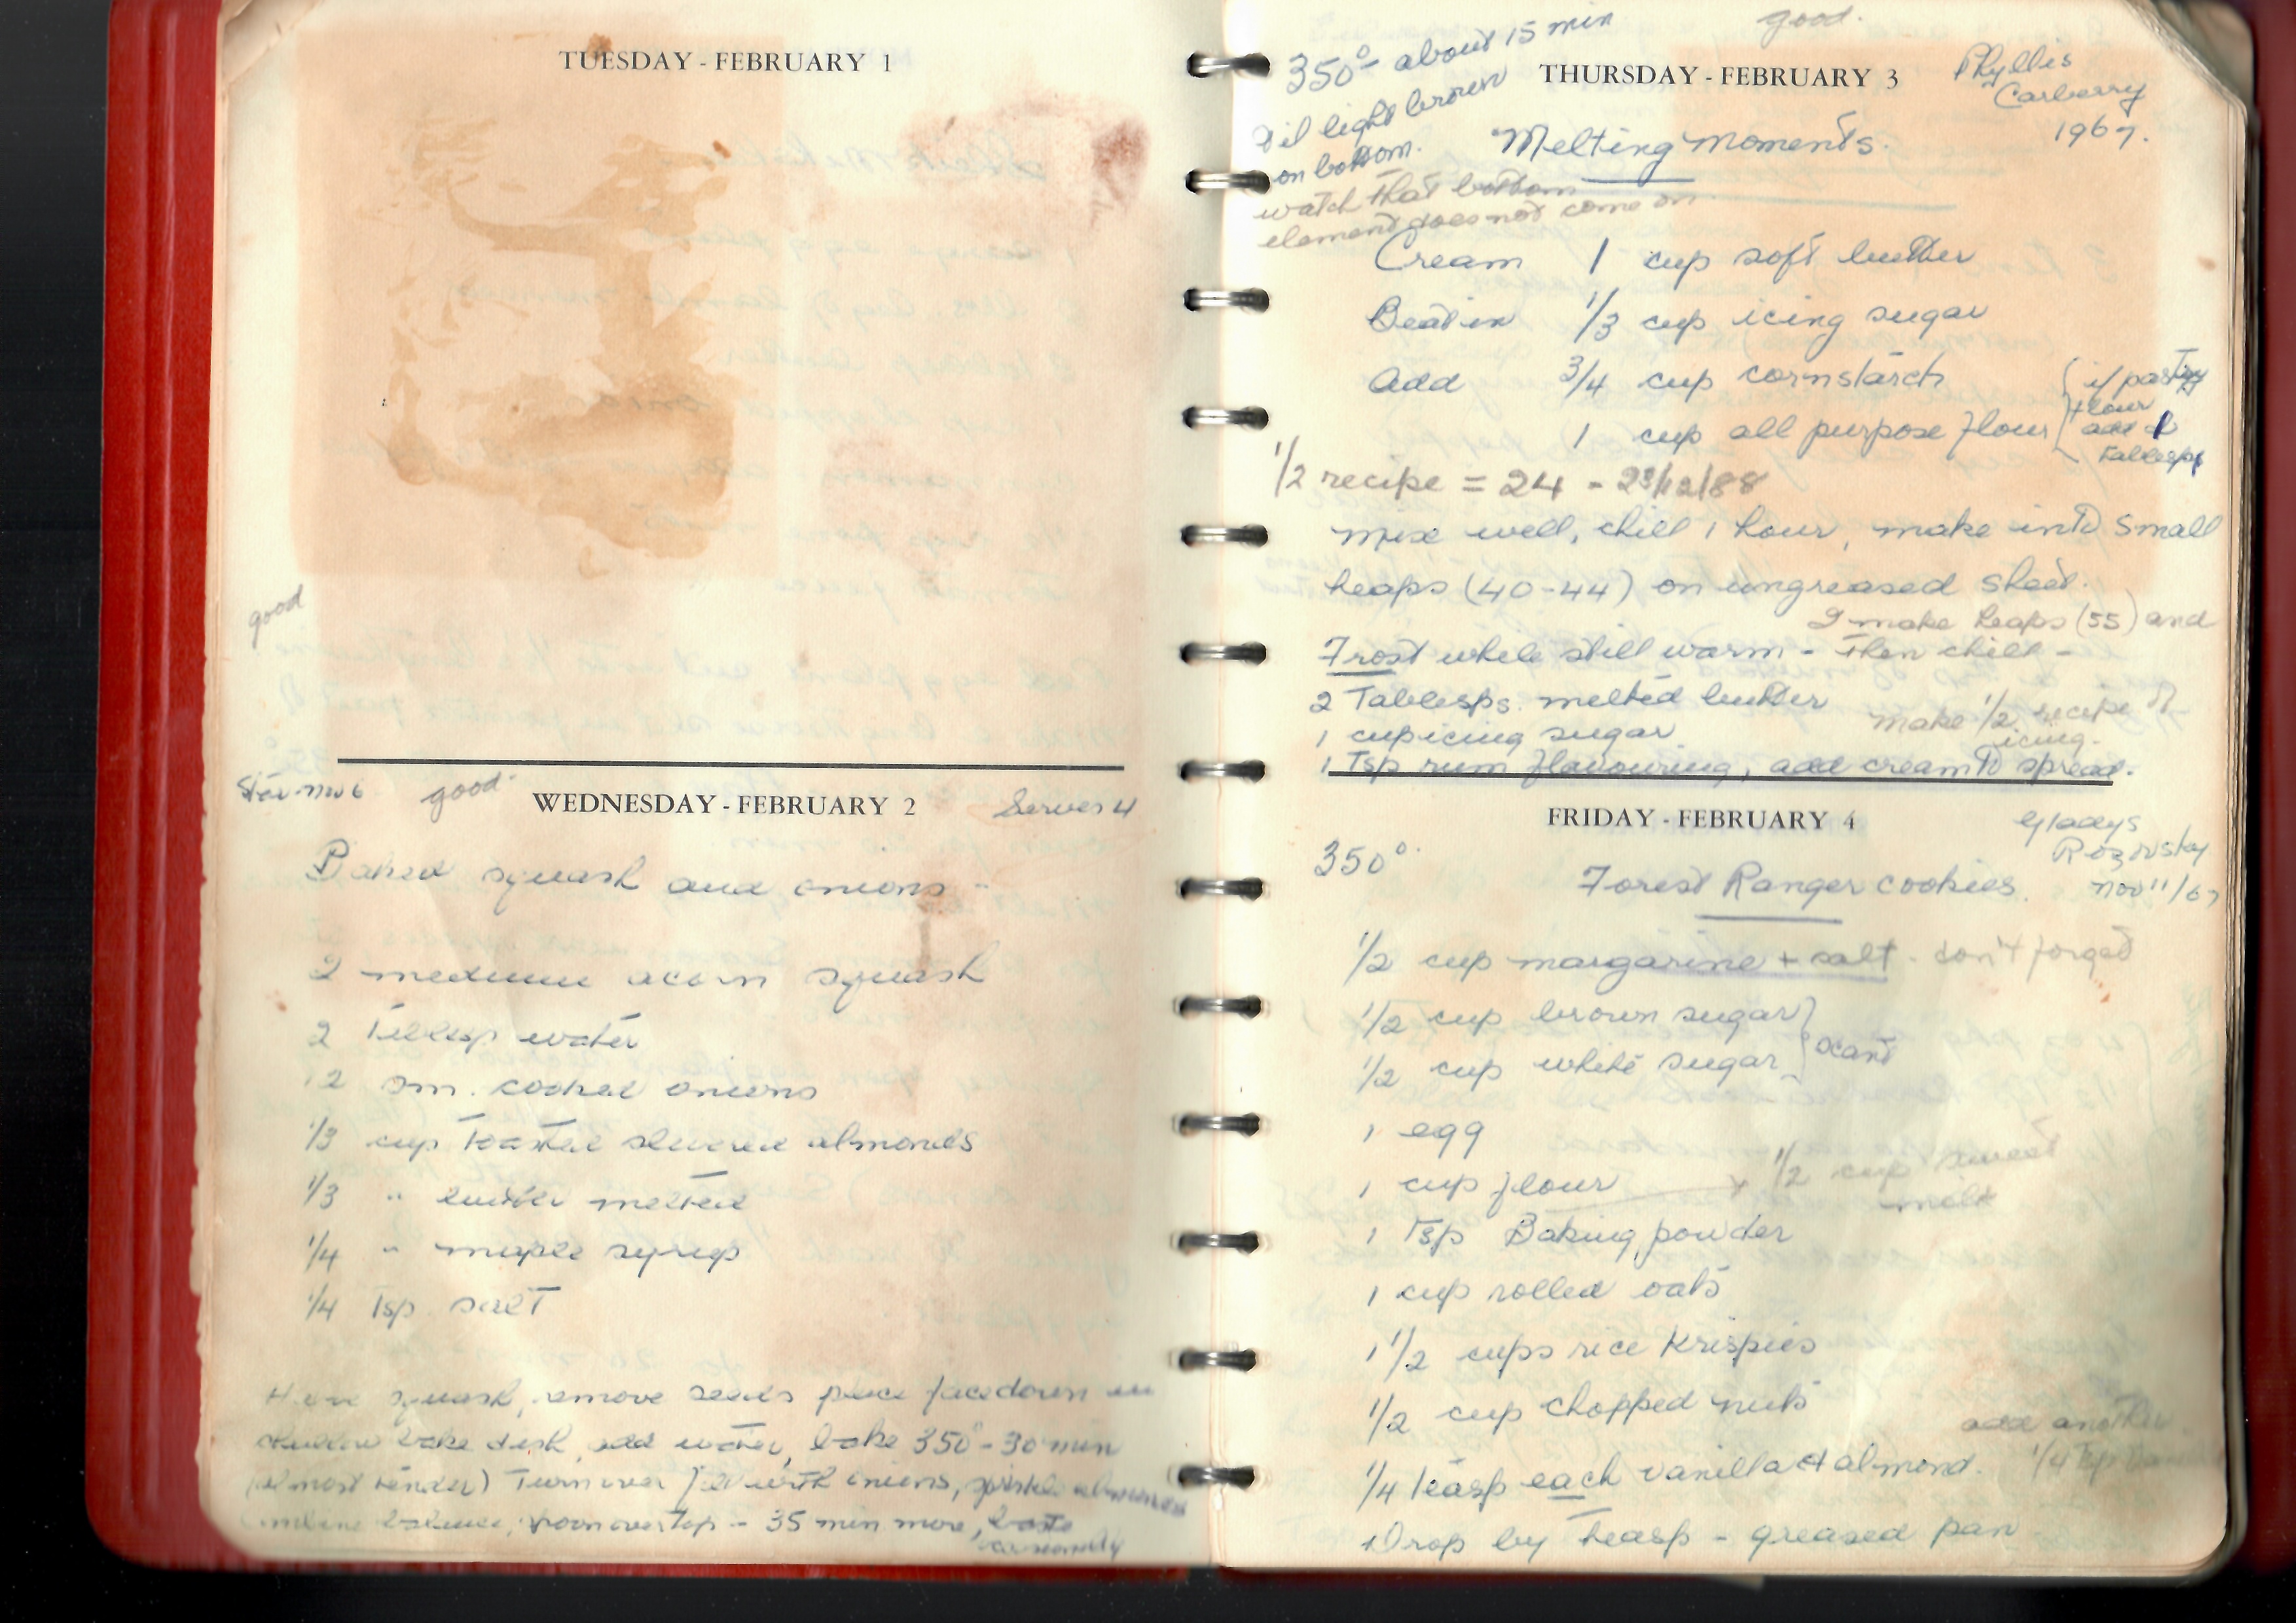 TUESDAY - FEBRUARY 1
good
good
WEDNESDAY - FEBRUARY 2
Serves 4
Baked squash and onions -
2 medium acorn squash
2 Tablesp water
2 sm. cooked onions
1/3 cup toasted slivered almonds
1/3 " butter melted
1/4 " maple syrup
1/4 Tsp. salt
squash, remove seeds place facedown in
shallow bake dish, add water, bake 350° - 30 min
(almost tender) Turn over fill with onions, sprinkle almonds
Combine balance, spoon over top - 35 min more, baste
occasionally
good.
350° - about 15 min
til light brown
on bottom.
watch that bottom
element does not come on
THURSDAY - FEBRUARY 3
Phyllis
Carberry
1967.
Melting Moments.
Cream 1 cup soft butter
Beat in 1/3 cup icing sugar
Add 3/4 cup cornstarch
1 cup all purpose flour
( if pastry
flour
add
Tablesp
1/2 recipe = 24 - 23/12/88
Mix well, chill 1 hour, make into small
heaps (40-44) on ungreased sheet.
I make heaps (55) and
Frost while still warm - then chill -
2 Tablesps. melted butter
make 1/2 recipe of
icing.
1 cup icing sugar
1 Tsp rum flavouring, add cream to spread.
FRIDAY - FEBRUARY 4
Gladys
Rozovsky
Nov 11/67
350°
Forest Ranger cookies.
1/2 cup margarine + salt - don't forget
1/2 cup brown sugar
1/2 cup white sugar } scant
1 egg
1 cup flour + 1/2 cup sweet
milk
1 Tsp Baking powder
1 cup rolled oats
1 1/2 cups rice Krispies
1/2 cup chopped nuts
add another
1/4 Tsp
1/4 teasp each vanilla + almond.
Drop by teasp - greased pan